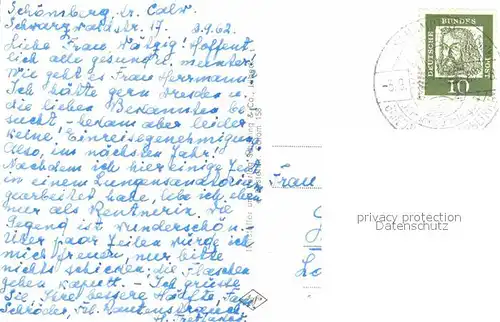 Schömberg kr. Calw
Schwarzwaldstr. 17. 3.9.62.
Liebe Frau Nätzig! Hoffent-
lich alle gesund u. munter.
Wie geht es Frau Herrmann.
Ich hätte gern Dresden u.
die lieben Bekannten be-
sucht - bekam aber leider
keine Einreisegenehmigung
Also, im nächsten Jahr!
Nachdem ich hier einige Zeit
in einem Lungensanatorium
gearbeitet habe, lebe ich eben
nur als Rentnerin. Die
Gegend ist wunderschön.
Über paar Zeilen würde ich
mich freuen, nur bitte
nichts schicken, die Flaschen
gehen kaputt. - Ich grüsse
Sie, Ihre bessere Hälfte, Fam.
Schröder, Frl.
Frau
DEUTSCHE BUNDESPOST
10
privacy protection
Datenschutz